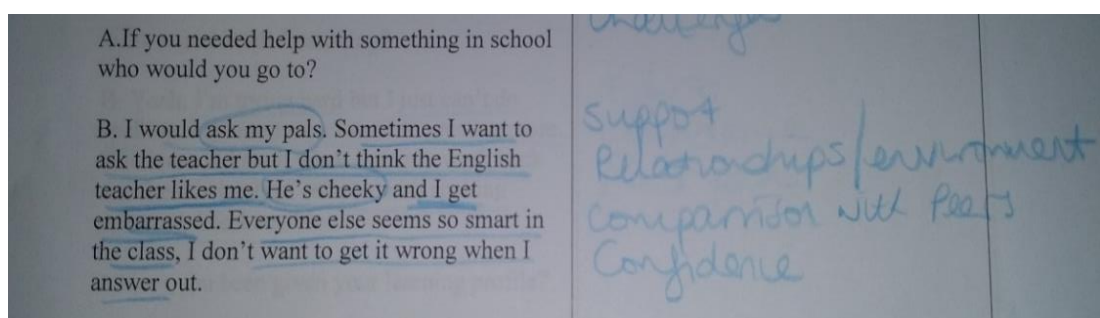 A.If you needed help with something in school
who would you go to?
B. I would ask my pals. Sometimes I want to
ask the teacher but I don't think the English
teacher likes me. He's cheeky and I get
embarrassed. Everyone else seems so smart in
the class, I don't want to get it wrong when I
answer out.
support
Relationships/environment
comparison with Peers
Confidence